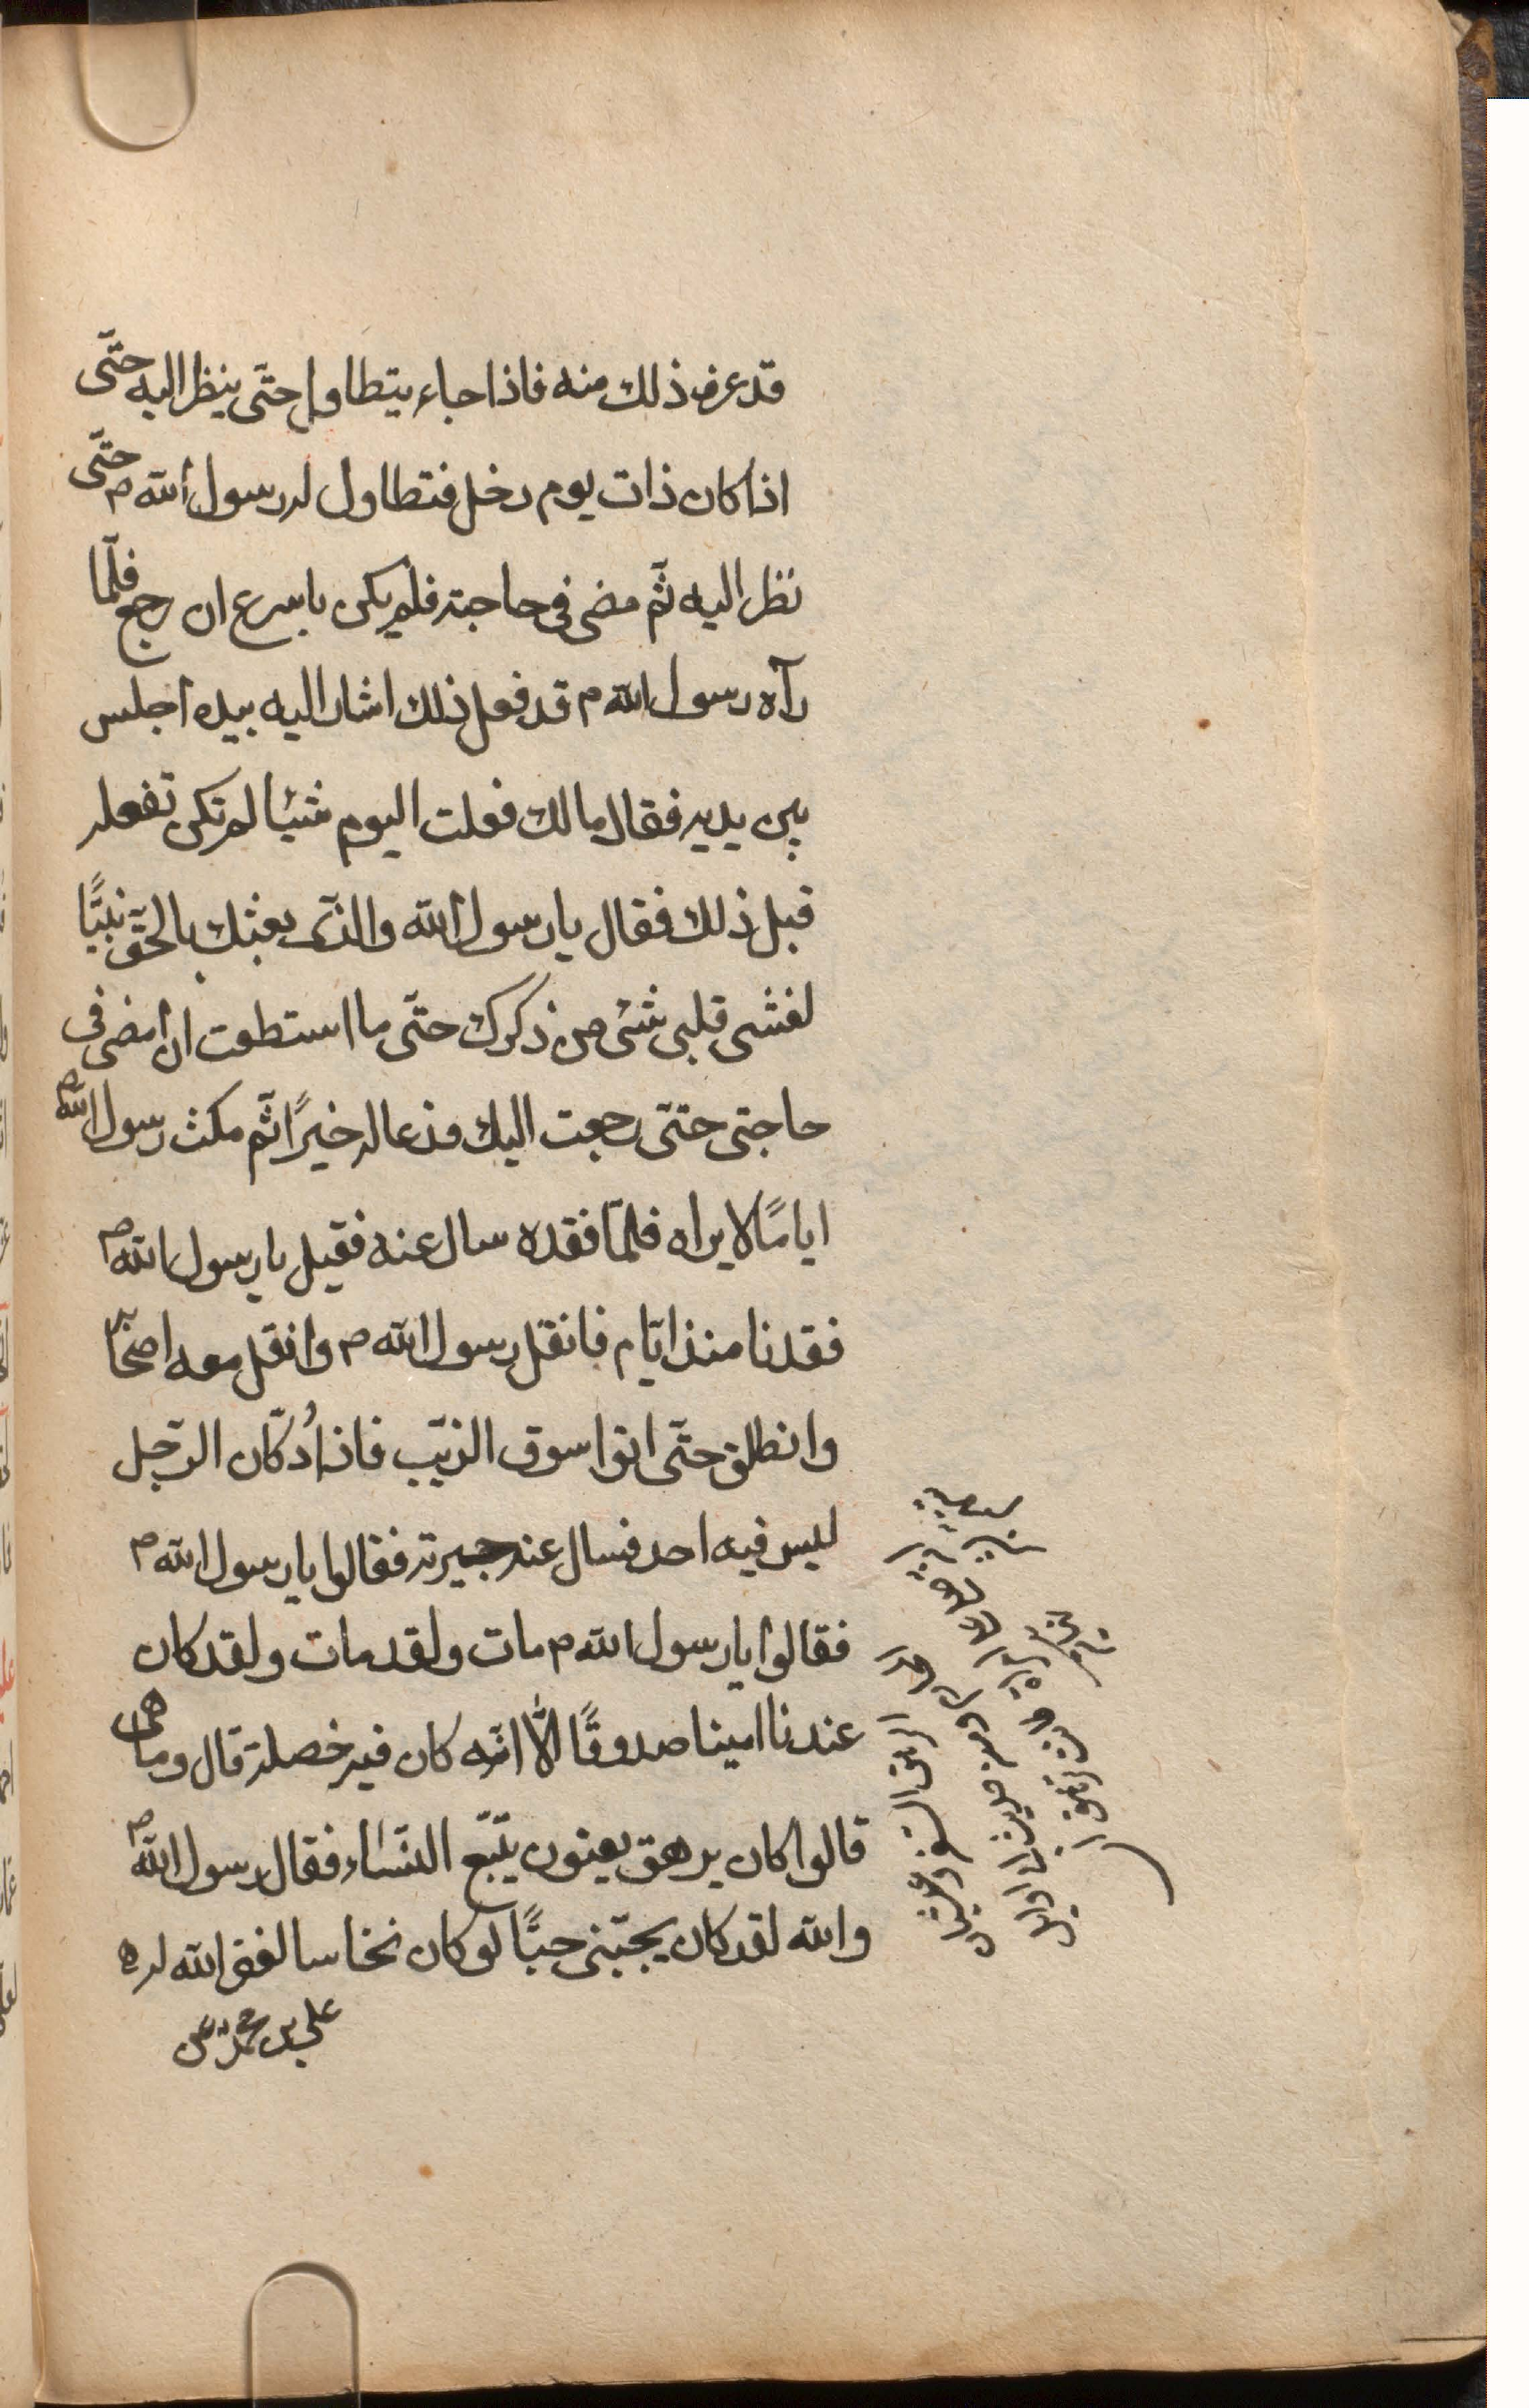 قد عرف ذلك منه فاذا جاء يتطاول حتّى ينظر اليه حتّى
اذا كان ذات يوم دخل فتطاول له رسول الله ص حتّى
نظر اليه ثمّ مضى فى حاجته فلم يكن باسرع ان رجع فلمّا
رآه رسول الله ص قد فعل ذلك اشار اليه بيده اجلس
بين يديه فقال مالك فعلت اليوم شيئا لم تكن تفعله
قبل ذلك فقال يا رسول الله والذّى بعثك بالحقّ نبيًّا
لغشى قلبى شئ من ذكرك حتّى ما استطعت ان امضى فى
حاجتى حتّى رجعت اليك فدعا له خيرًا ثمّ مكث رسول الله ص
ايامًا لا يراه فلمّا فقده سال عنه فقيل يا رسول الله ص
فقدنا منذ ايّام فانقل رسول الله ص وانقل معه اصحابه
وانطلق حتّى اتوا سوق الزيّت فاذا دُكّان الرّجل
ليس فيه احد فسال عنه جيرته فقالوا يا رسول الله ص
فقالوا يا رسول الله ص مات ولقد مات ولقد كان
عندنا امينا صدوقًا الّا انّه كان فيه خصلة قال وما هى
قالوا كان يرهق يعنون يتّبع النّساء فقال رسول الله ص
والله لقد كان يحبّنى حبًّا لو كان نخاسا لغفر الله له
على بن محمد